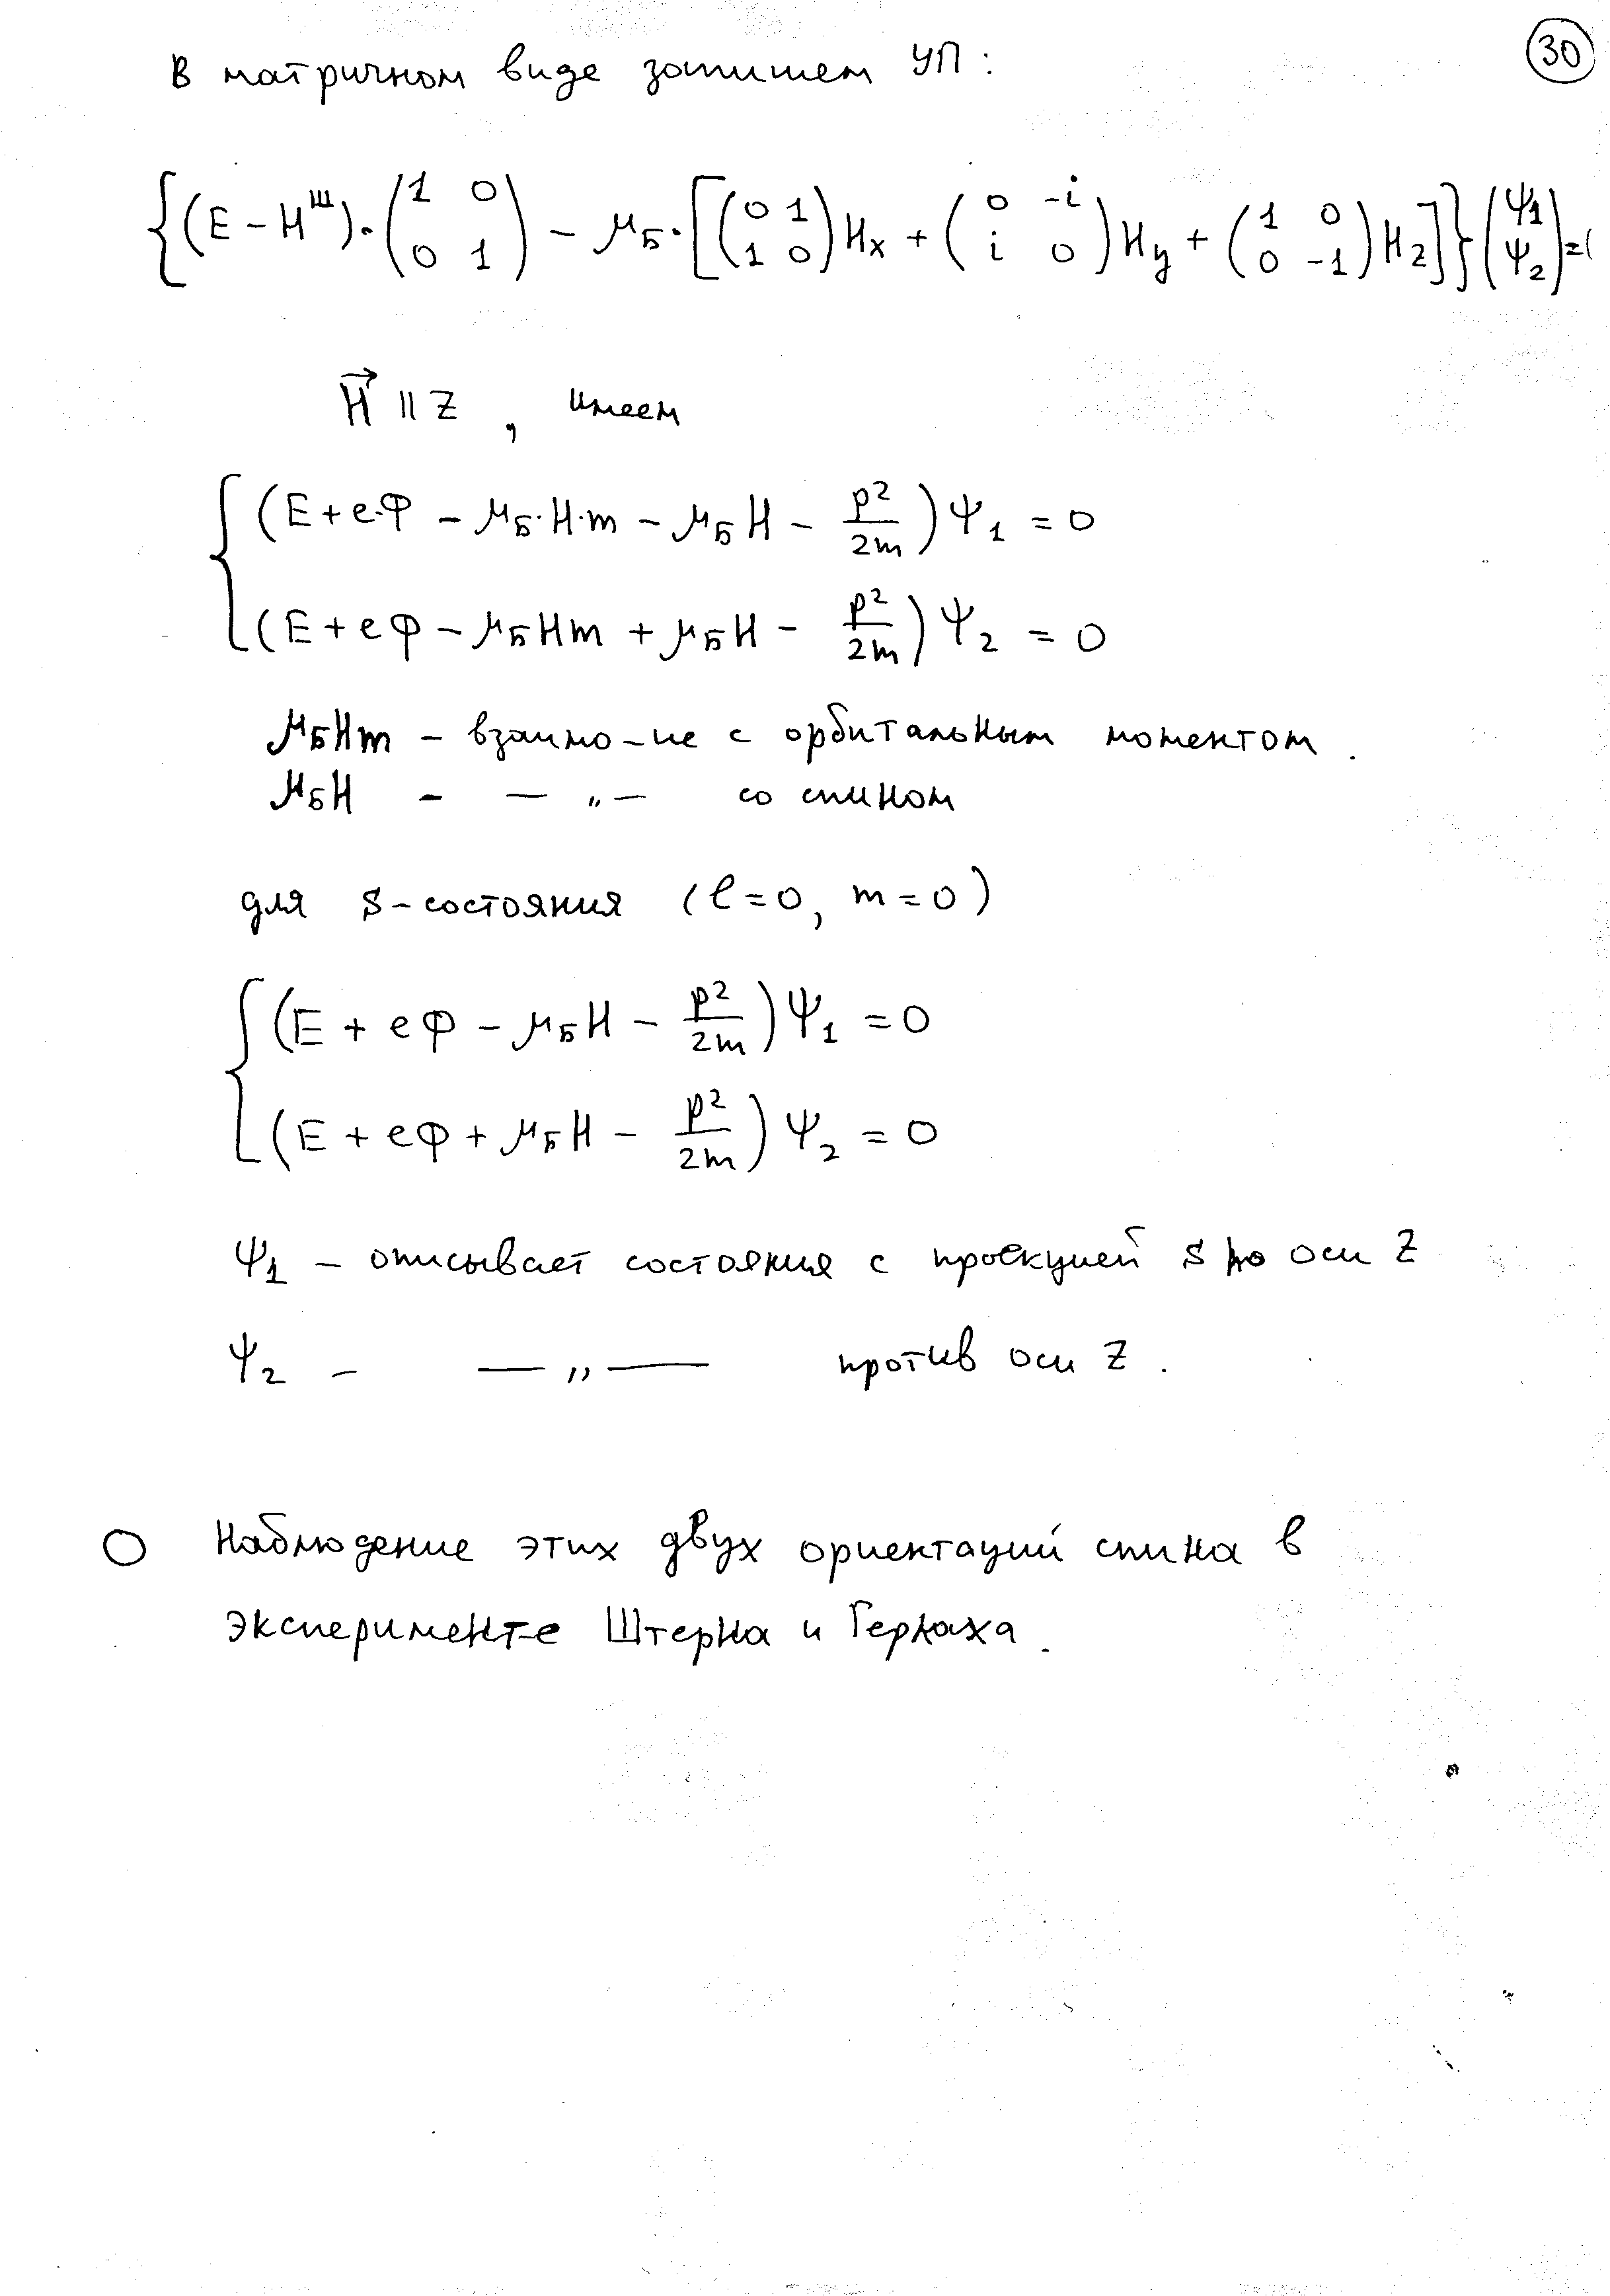 30
В матричном виде запишем УП:
{(E - H^Ш)·(1 0 / 0 1) - μ_Б·[(0 1 / 1 0)H_x + (0 -i / i 0)H_y + (1 0 / 0 -1)H_z]}(ψ_1 / ψ_2) =
H⃗ || Z, имеем
(E + e·φ - μ_Б·H·m - μ_Б H - p²/2m) ψ_1 = 0
(E + eφ - μ_Б H m + μ_Б H - p²/2m) ψ_2 = 0
μ_Б H m - взаимо-ие с орбитальным моментом.
μ_Б H - — „ — со спином
для S-состояния (ℓ=0, m=0)
(E + eφ - μ_Б H - p²/2m) ψ_1 = 0
(E + eφ + μ_Б H - p²/2m) ψ_2 = 0
ψ_1 - описывает состояния с проекцией S по оси Z
ψ_2 - — „ — против оси Z.
○ Наблюдение этих двух ориентаций спина в
эксперименте Штерна и Герлаха.